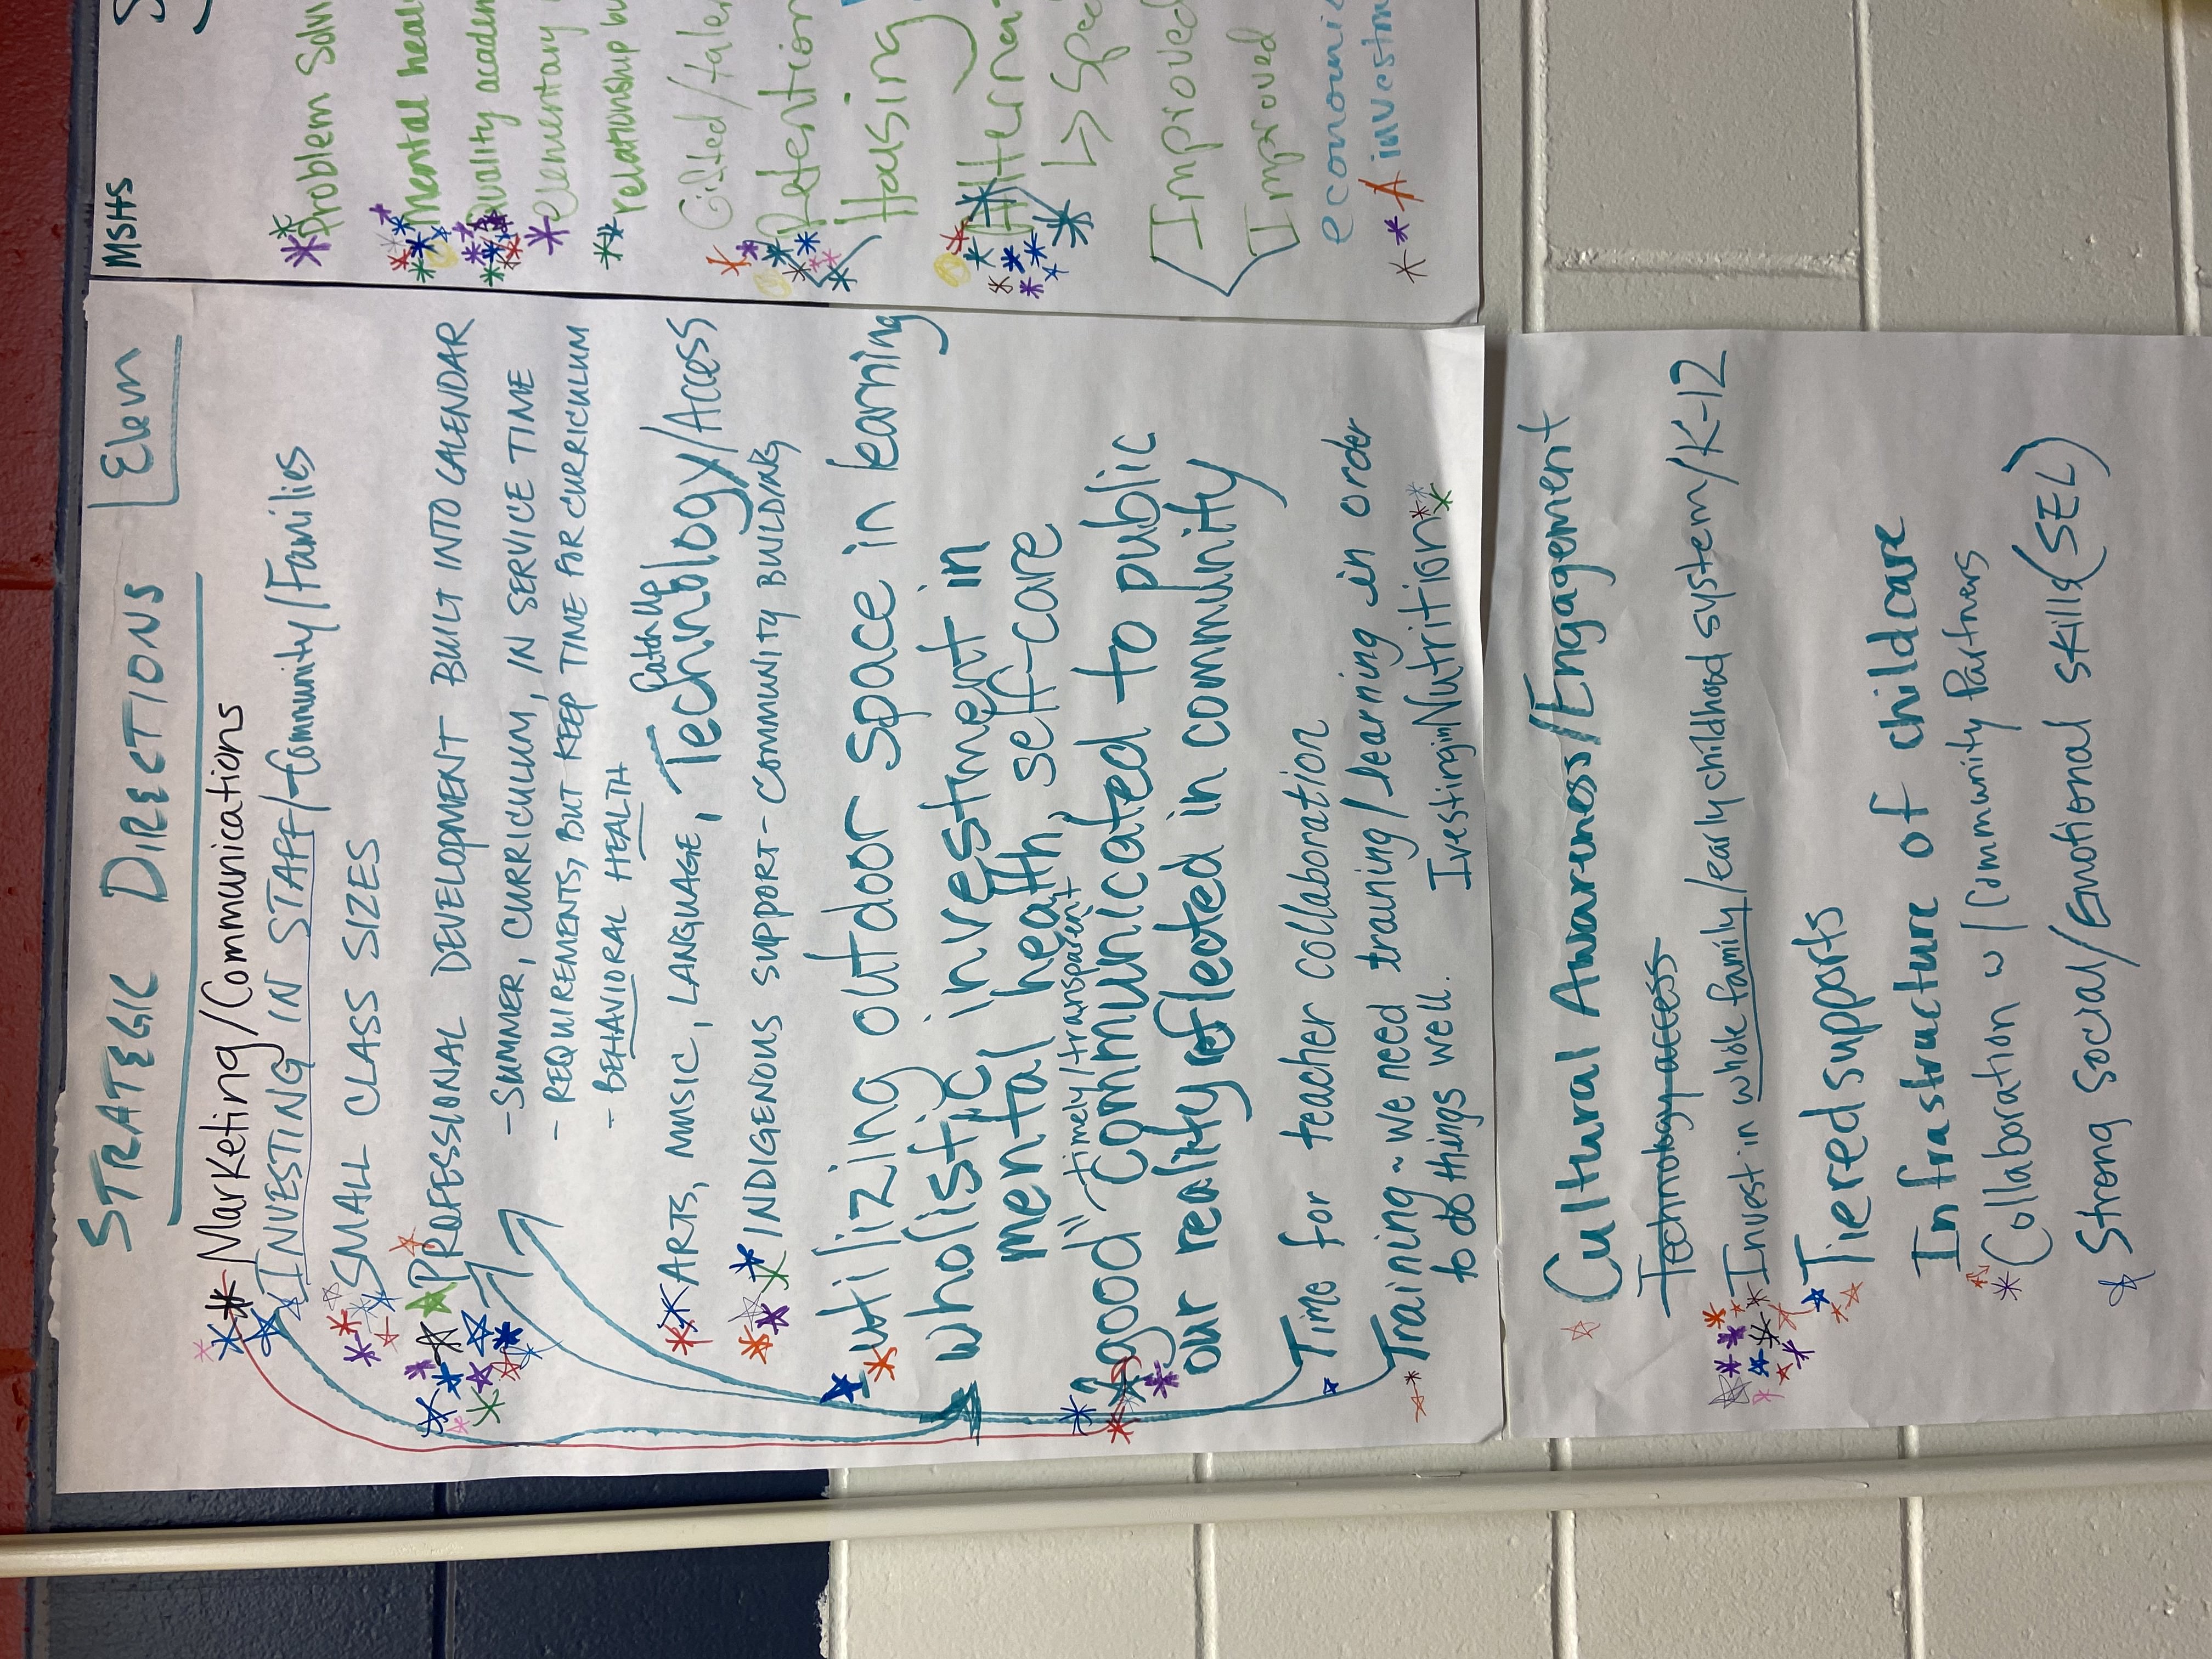 STRATEGIC DIRECTIONS Elem
Marketing/Communications
INVESTING IN STAFF/Community/Families
SMALL CLASS SIZES
PROFESSIONAL DEVELOPMENT BUILT INTO CALENDAR
- SUMMER, CURRICULUM, IN SERVICE TIME
- REQUIREMENTS, BUT KEEP TIME FOR CURRICULUM
- BEHAVIORAL HEALTH
Patch Up
ARTS, MUSIC, LANGUAGE, Technology/Access
INDIGENOUS SUPPORT - COMMUNITY BUILDING
utilizing outdoor space in learning
wholistic investment in
mental health, self-care
timely/transparent
"good" communicated to public
our reality reflected in community
Time for teacher collaboration
Training ~ we need training/learning in order
to do things well.
Ivesting in Nutrition
Cultural Awareness/Engagement
Technology access
Invest in whole family/early childhood system/K-12
Tiered supports
Infrastructure of childcare
Collaboration w/ Community Partners
Strong Social/Emotional skills (SEL)
MSHS
Problem Solv
mental heal
Quality academ
elementary
relationship bu
Gifted/talen
Retention
Hosing
Alternat
↳ Spec
Improved
Improved
economic
A investm